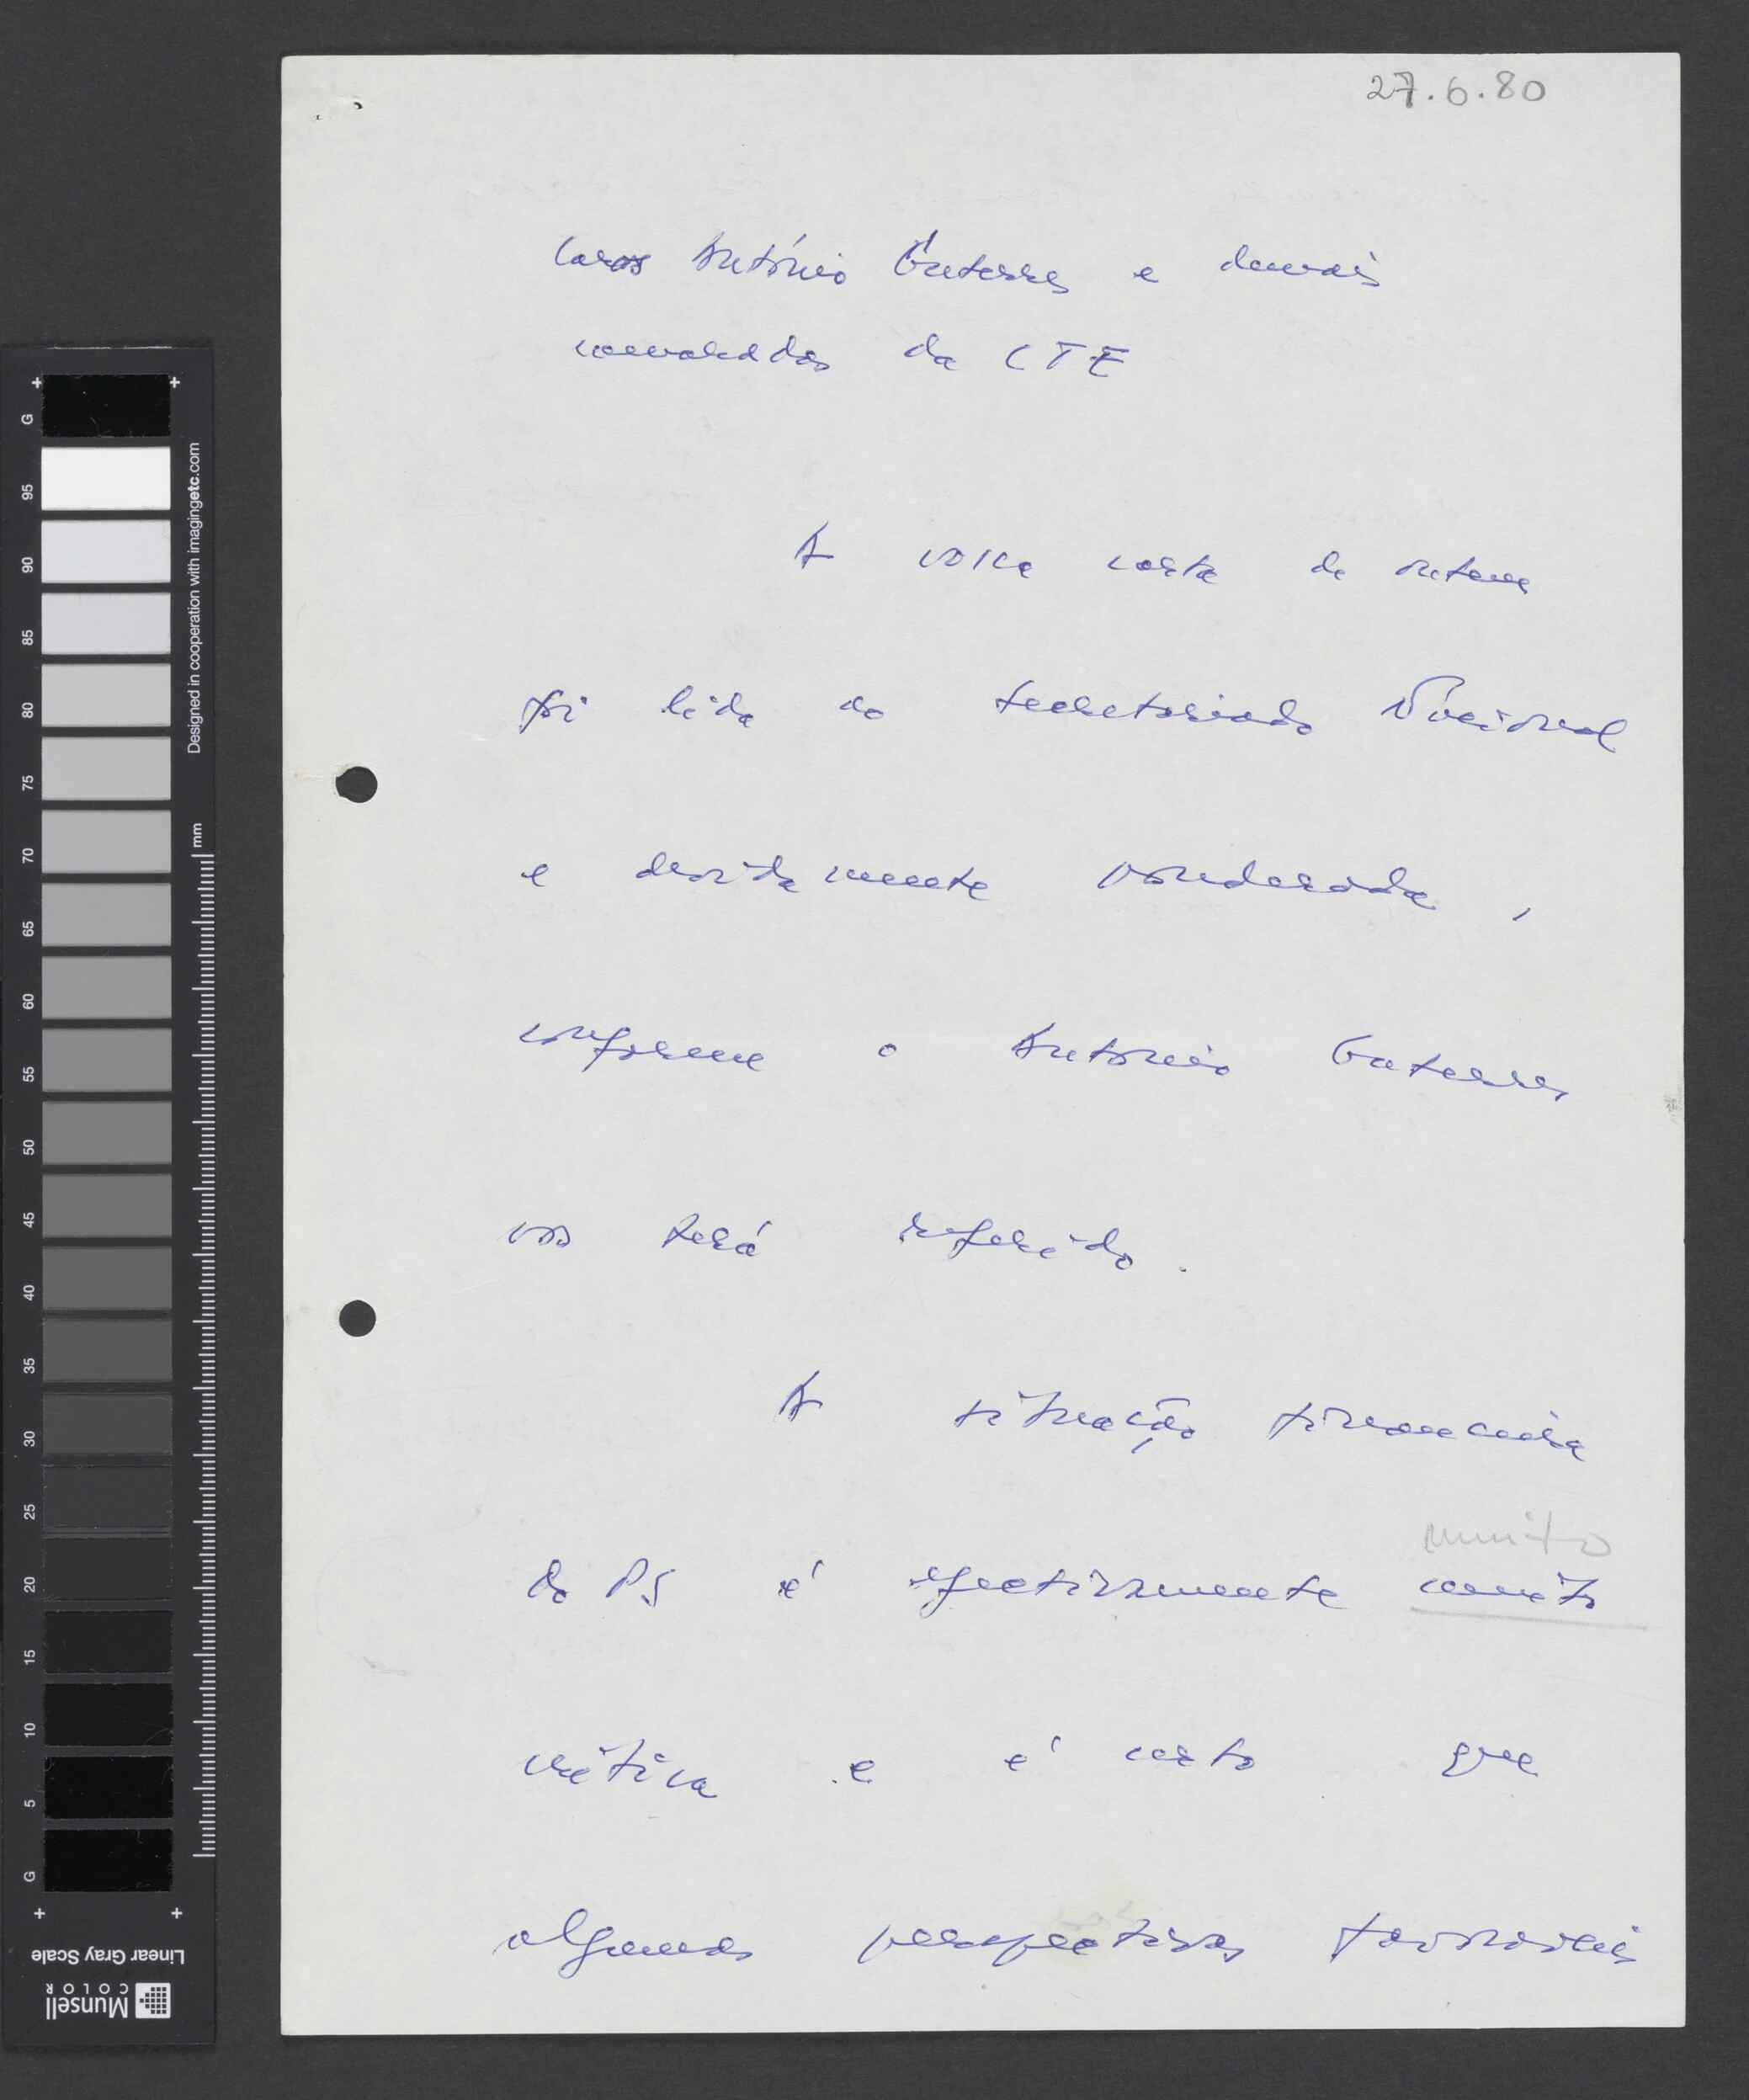 27.6.80
Caros António Guterres e demais
camaradas da CTE
A vossa carta de ontem
foi lida ao Secretariado Nacional
e devidamente ponderada,
conforme o António Guterres
vos terá referido.
A situação financeira
muito
do PS é efectivamente muito
crítica e é certo que
algumas perspectivas favoráveis
G
95
90
85
80
75
70
65
60
55
50
45
40
35
30
25
20
15
10
5
G
Designed in cooperation with imagingetc.com
mm
Linear Gray Scale
Munsell
COLOR